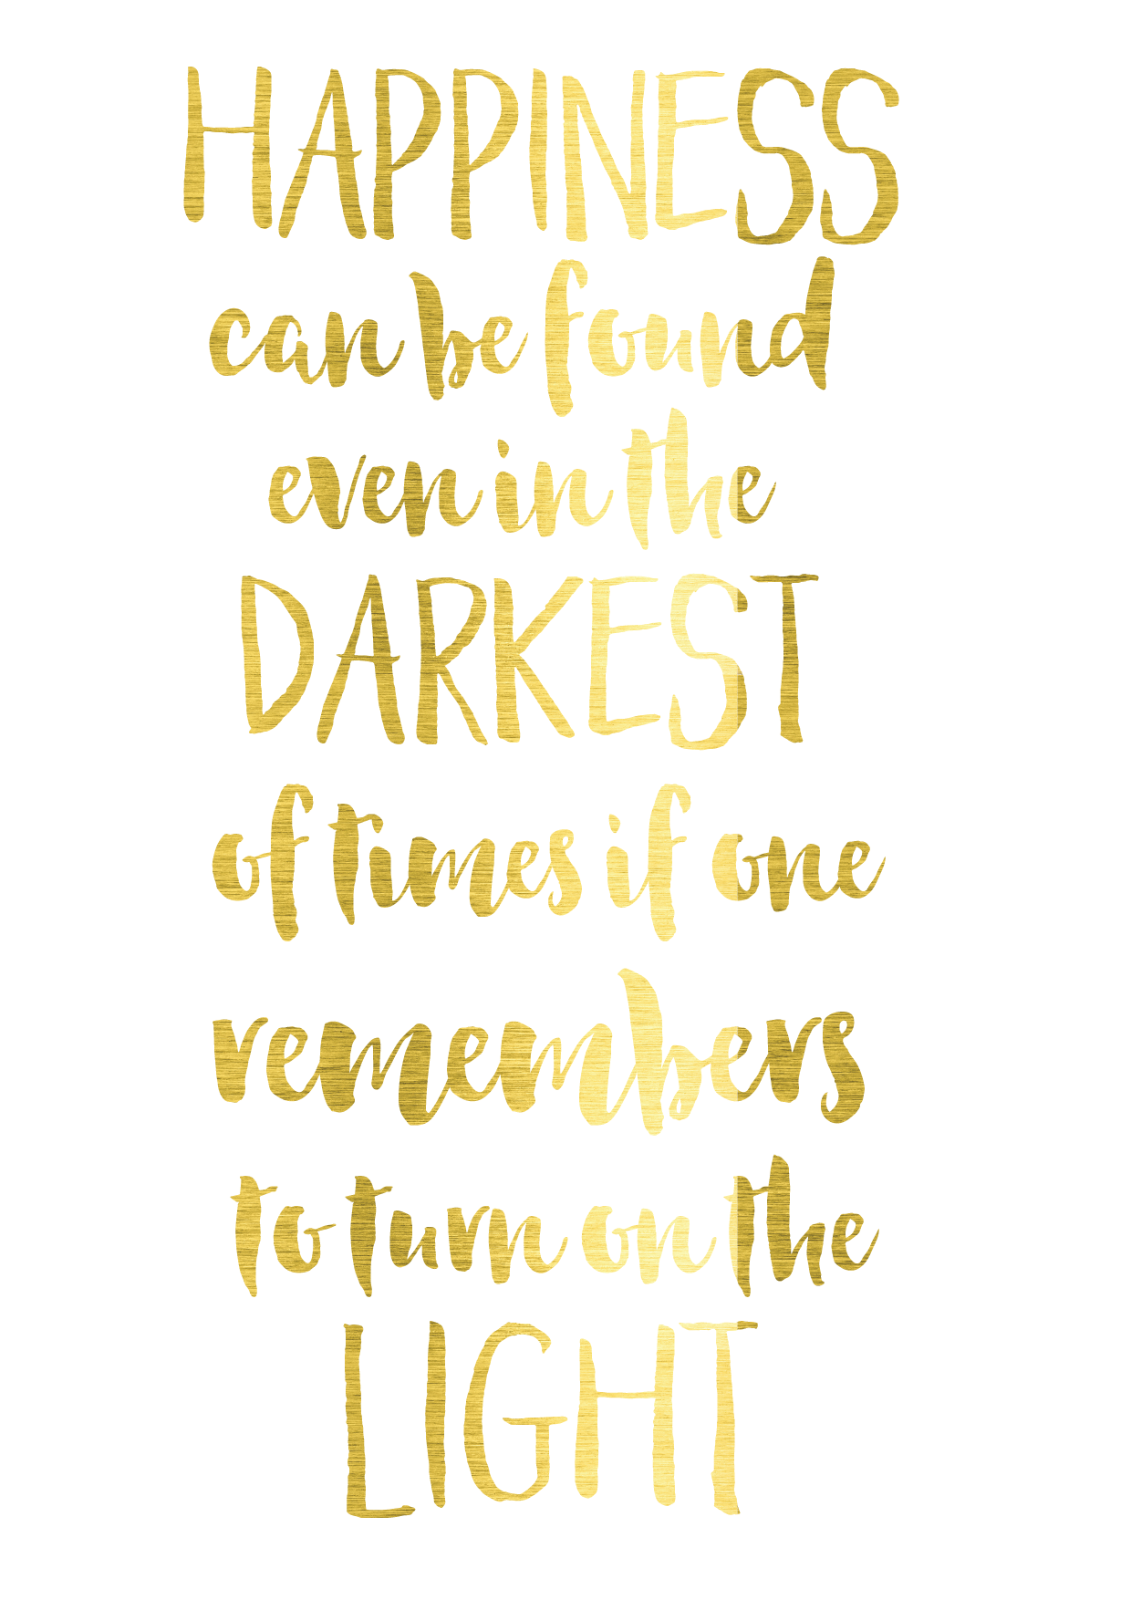 HAPPINESS
can be found
even in the
DARKEST
of times if one
remembers
to turn on the
LIGHT